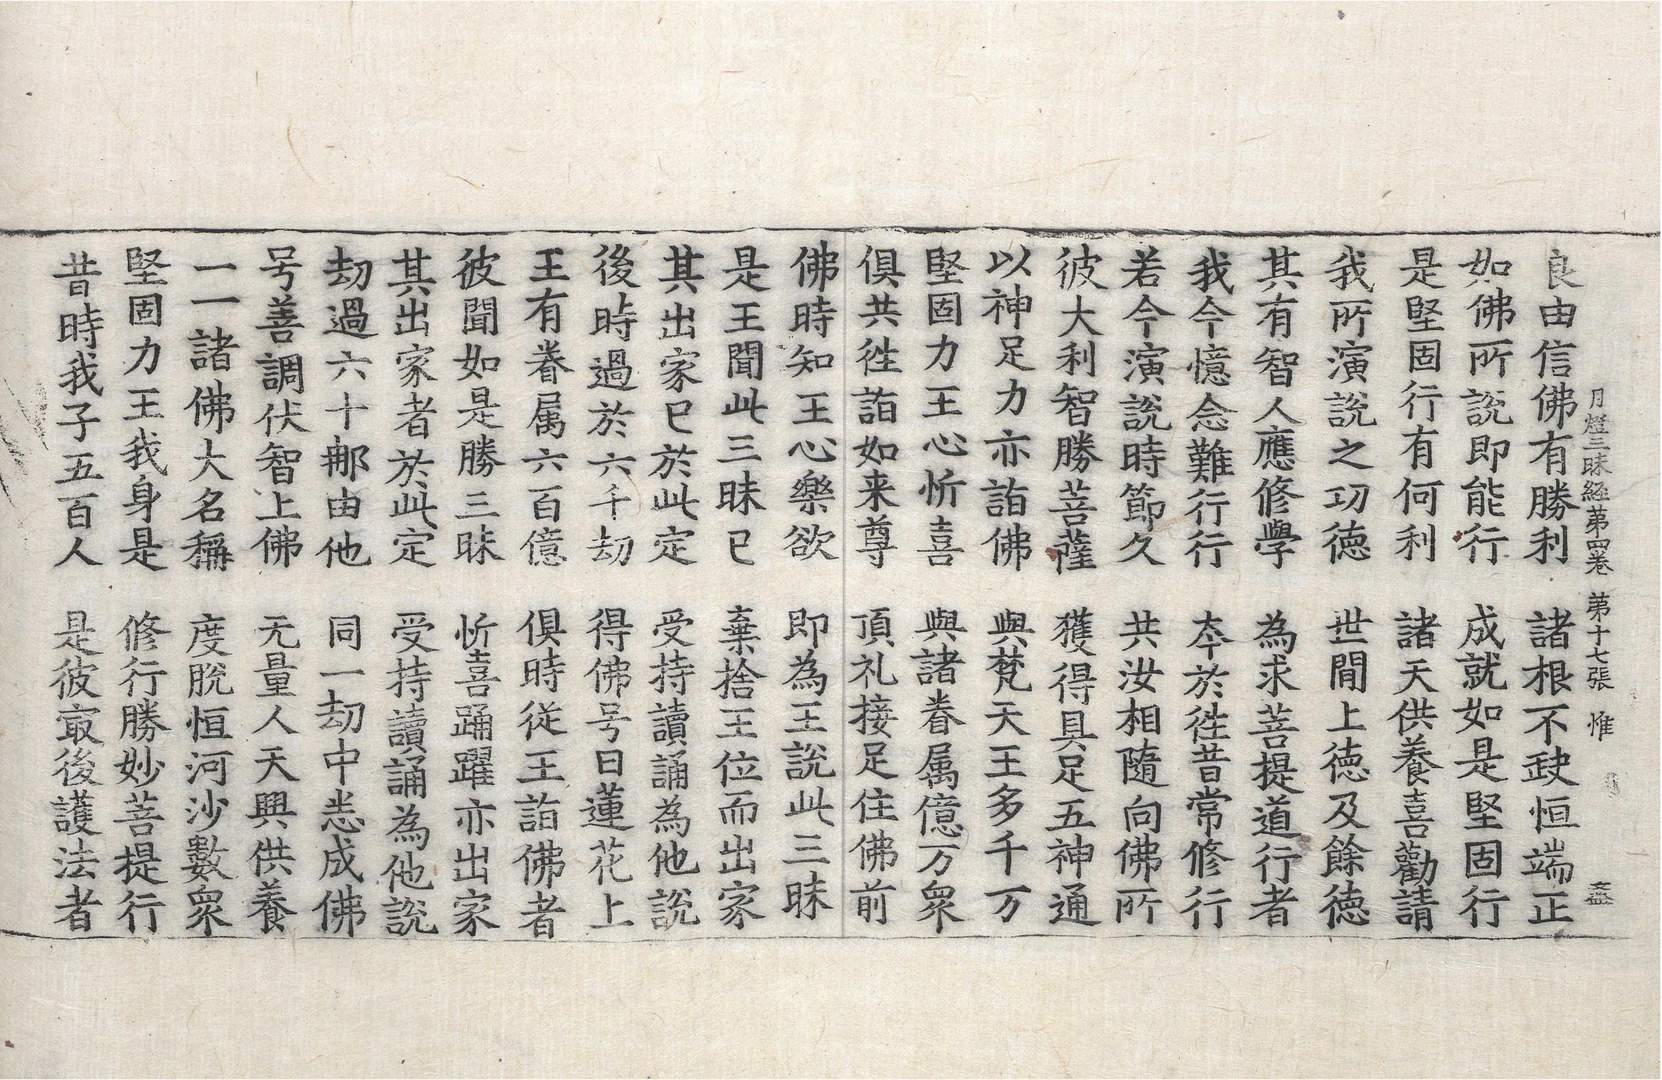 月燈三昧経苐四卷 苐十七張 惟 盡
良由信佛有勝利 諸根不缺恒端正
如佛所說即能行 成就如是堅固行
是堅固行有何利 諸天供養喜勸請
我所演說之功德 世間上德及餘德
其有智人應修學 為求菩提道行者
我今憶念難行行 夲於徃昔常修行
若今演說時節久 共汝相隨向佛所
彼大利智勝菩薩 獲得具足五神通
以神足力亦詣佛 與梵天王多千万
堅固力王心忻喜 與諸眷属億万衆
俱共徃詣如来尊 頂礼接足住佛前
佛時知王心樂欲 即為王說此三昧
是王聞此三昧已 棄捨王位而出家
其出家已於此定 受持讀誦為他說
後時過於六十劫 得佛号曰蓮花上
王有眷属六百億 俱時從王詣佛者
彼聞如是勝三昧 忻喜踊躍亦出家
其出家者於此定 受持讀誦為他說
劫過六十那由他 同一劫中悉成佛
号善調伏智上佛 无量人天興供養
一一諸佛大名稱 度脫恒河沙數衆
堅固力王我身是 修行勝妙菩提行
昔時我子五百人 是彼㝡後護法者